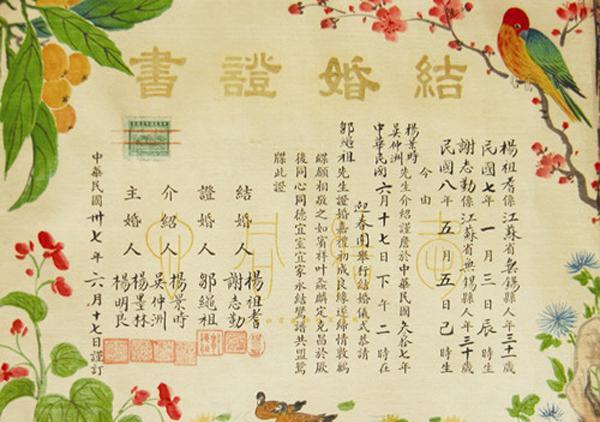 結婚證書
楊祖耆係江蘇省無錫縣人年三十一歲
民國七年一月三日辰時生
謝志勤係江蘇省無錫縣人年三十歲
民國八年五月五日巳時生
今由
楊景時
吳仲洲
先生介紹謹詹於中華民國叁拾七年
中華民國六月十七日下午二時在
迎春園舉行結婚儀式恭請
鄒祖先生證婚嘉禮初成良緣遂締情敦鶼
鰈願相敬之如賓祥叶螽麟定克昌於厥
後同心同德宜室宜家永結鸞譜共盟鴛
牒此證
結婚人 楊祖耆
謝志勤
證婚人 鄒祖
介紹人 楊景時
吳仲洲
主婚人 楊墨林
楊明良
中華民國卅七年六月十七日謹訂